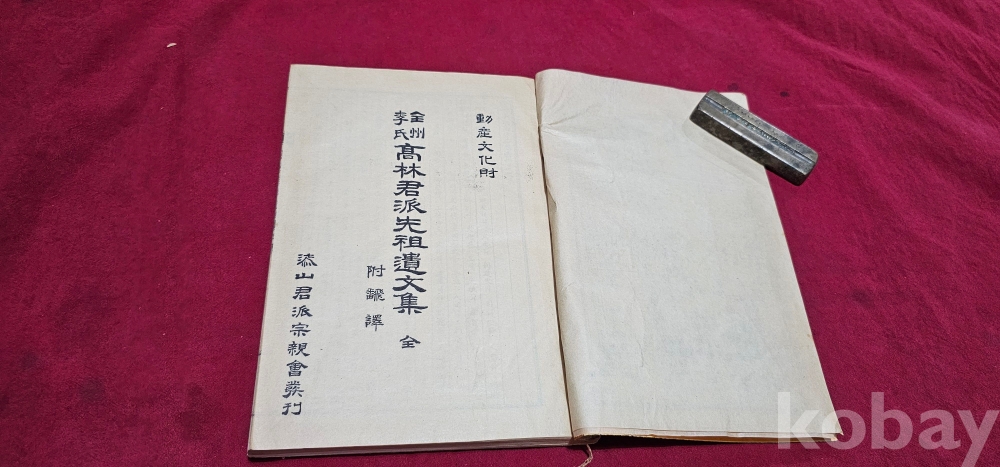 動産文化財
全州李氏高林君派先祖遺文集 全
附飜譯
漆山君派宗親會發刊
kobay